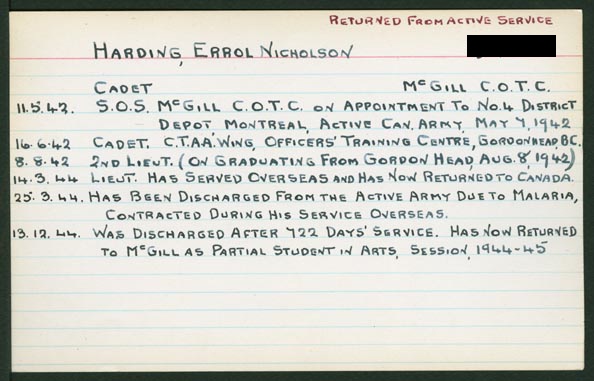 RETURNED FROM ACTIVE SERVICE
HARDING, ERROL NICHOLSON
CADET McGILL C.O.T.C.
11.5.42. S.O.S. McGILL C.O.T.C. ON APPOINTMENT TO NO.4 DISTRICT
DEPOT, MONTREAL, ACTIVE CAN. ARMY, MAY 7, 1942
16.6.42 CADET. C.T.A.A. WING, OFFICERS' TRAINING CENTRE, GORDON HEAD, B.C.
8.8.42 2ND LIEUT. (ON GRADUATING FROM GORDON HEAD, AUG. 8, 1942)
14.3.44 LIEUT. HAS SERVED OVERSEAS AND HAS NOW RETURNED TO CANADA.
25.3.44. HAS BEEN DISCHARGED FROM THE ACTIVE ARMY DUE TO MALARIA,
CONTRACTED DURING HIS SERVICE OVERSEAS.
13.12.44. WAS DISCHARGED AFTER 722 DAYS' SERVICE. HAS NOW RETURNED
TO McGILL AS PARTIAL STUDENT IN ARTS, SESSION, 1944-45